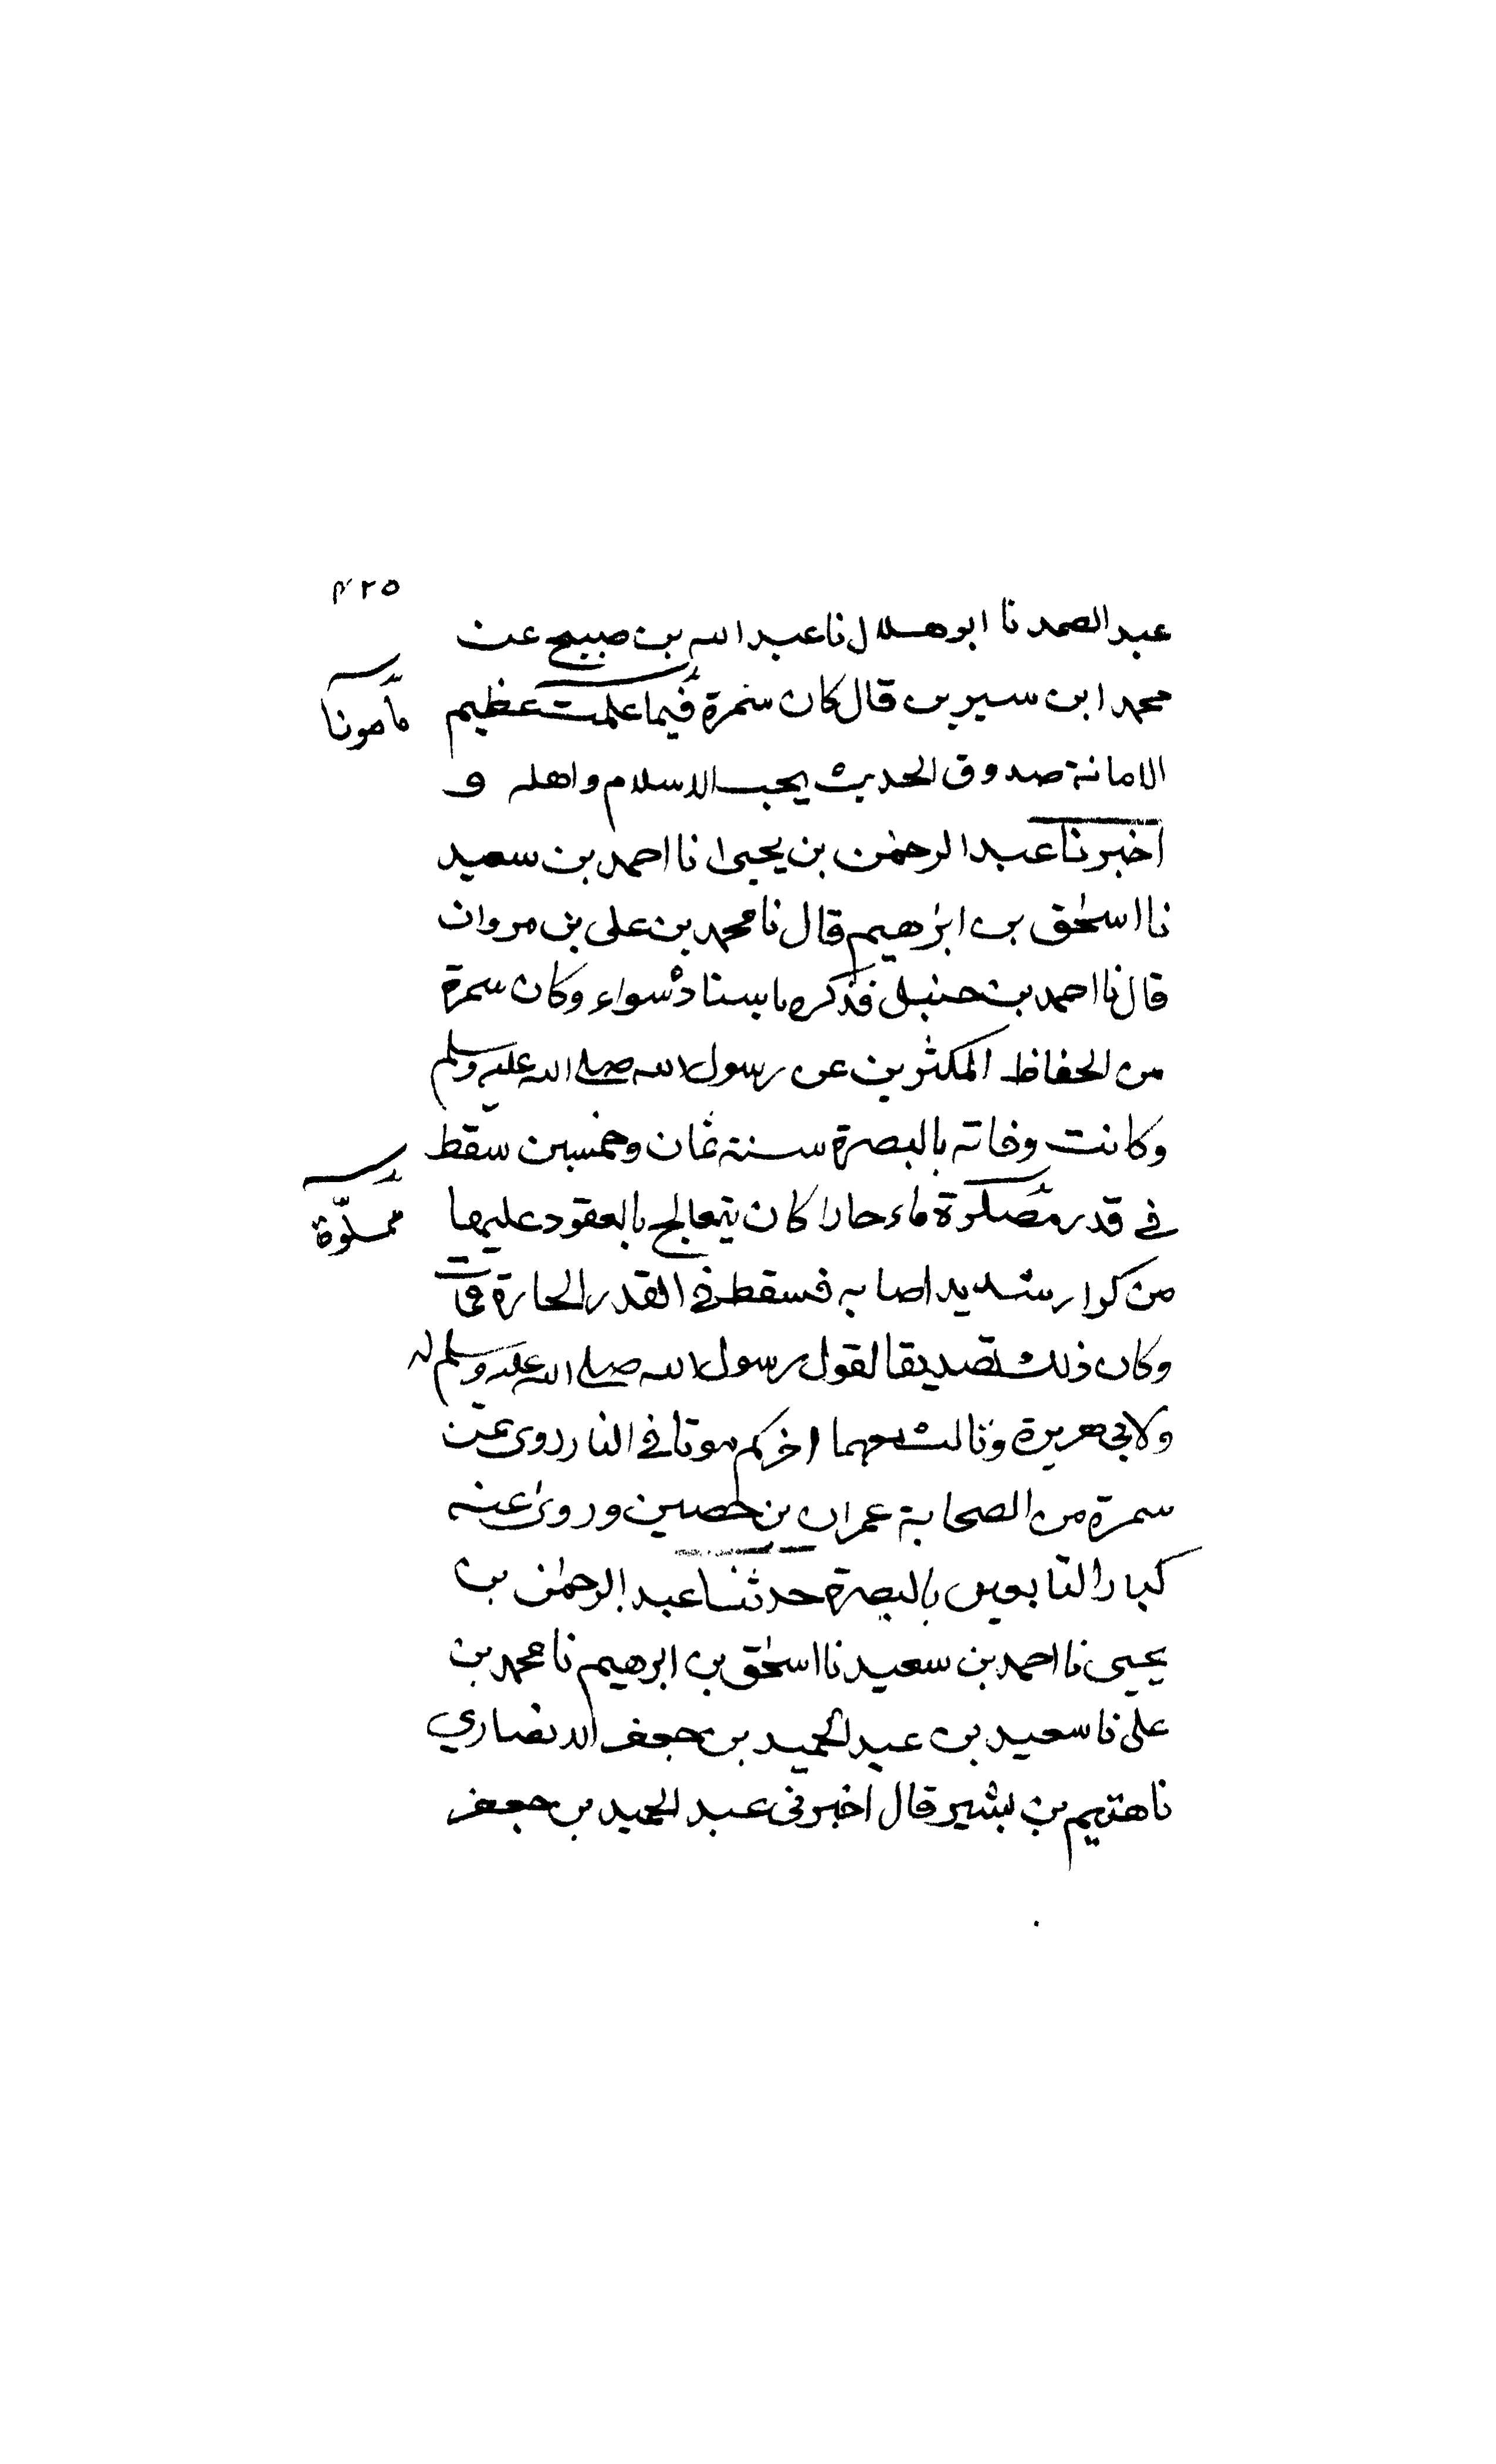 ٤٢٥
عبد الصمد نا ابو هلال نا عبد الله بن صبيح عن
محمد ابن سيرين قال كان سمرة فيما علمت عظيم
مأمونا
الامانة صدوق الحديث يحب الاسلام واهله و
اخبرنا عبد الرحمٰن بن يحيىٰ نا احمد بن سعيد
نا اسحٰق بن ابرٰهيم قال نا محمد بن على بن مروان
قال نا احمد بن حنبل فذكره باسناده سواء وكان سمرة
من الحفاظ المكثرين عن رسول الله صلى الله عليه وسلم
وكانت وفاته بالبصرة سنة ثمان وخمسين سقط
في قدر مصلوة ماء حارا كان يتعالج بالعقود عليها
مملوّة
من كوار شديد اصابه فسقط في القدر الحارة فمات
وكان ذلك تصديقا لقول رسول الله صلى الله عليه وسلم له
ولابي هريرة وثالث معهما اخركم موتا في النار روى عن
سمرة من الصحابة عمران بن حصين وروىٰ عنه
كبار التابعين بالبصرة حدثنا عبد الرحمٰن بن
يحيى نا احمد بن سعيد نا اسحٰق بن ابرهيم نا محمد بن
على نا سعيد بن عبد الحميد بن جعفر الانصاري
نا هشيم بن بشير قال اخبرنى عبد الحميد بن جعفر